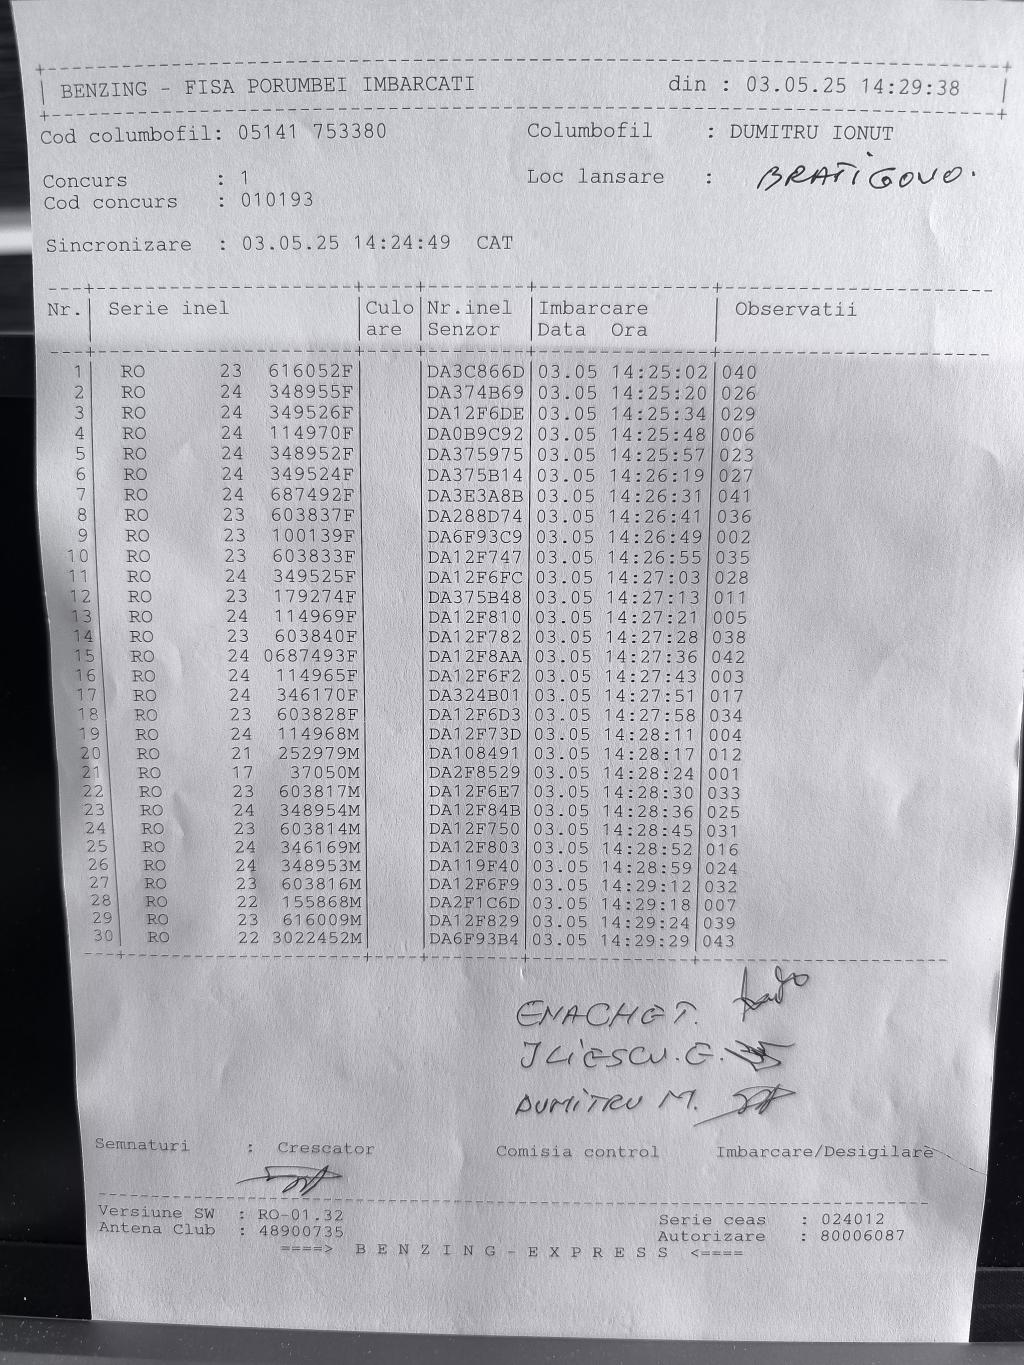 BENZING - FISA PORUMBEI IMBARCATI din : 03.05.25 14:29:38
Cod columbofil: 05141 753380 Columbofil : DUMITRU IONUT
Concurs : 1 Loc lansare : BRATIGOVO.
Cod concurs : 010193
Sincronizare : 03.05.25 14:24:49 CAT
Nr. Serie inel Culo Nr.inel Imbarcare Observatii
are Senzor Data Ora
1 RO 23 616052F DA3C866D 03.05 14:25:02 040
2 RO 24 348955F DA374B69 03.05 14:25:20 026
3 RO 24 349526F DA12F6DE 03.05 14:25:34 029
4 RO 24 114970F DA0B9C92 03.05 14:25:48 006
5 RO 24 348952F DA375975 03.05 14:25:57 023
6 RO 24 349524F DA375B14 03.05 14:26:19 027
7 RO 24 687492F DA3E3A8B 03.05 14:26:31 041
8 RO 23 603837F DA288D74 03.05 14:26:41 036
9 RO 23 100139F DA6F93C9 03.05 14:26:49 002
10 RO 23 603833F DA12F747 03.05 14:26:55 035
11 RO 24 349525F DA12F6FC 03.05 14:27:03 028
12 RO 23 179274F DA375B48 03.05 14:27:13 011
13 RO 24 114969F DA12F810 03.05 14:27:21 005
14 RO 23 603840F DA12F782 03.05 14:27:28 038
15 RO 24 0687493F DA12F8AA 03.05 14:27:36 042
16 RO 24 114965F DA12F6F2 03.05 14:27:43 003
17 RO 24 346170F DA324B01 03.05 14:27:51 017
18 RO 23 603828F DA12F6D3 03.05 14:27:58 034
19 RO 24 114968M DA12F73D 03.05 14:28:11 004
20 RO 21 252979M DA108491 03.05 14:28:17 012
21 RO 17 37050M DA2F8529 03.05 14:28:24 001
22 RO 23 603817M DA12F6E7 03.05 14:28:30 033
23 RO 24 348954M DA12F84B 03.05 14:28:36 025
24 RO 23 603814M DA12F750 03.05 14:28:45 031
25 RO 24 346169M DA12F803 03.05 14:28:52 016
26 RO 24 348953M DA119F40 03.05 14:28:59 024
27 RO 23 603816M DA12F6F9 03.05 14:29:12 032
28 RO 22 155868M DA2F1C6D 03.05 14:29:18 007
29 RO 23 616009M DA12F829 03.05 14:29:24 039
30 RO 22 3022452M DA6F93B4 03.05 14:29:29 043
ENACHE T.
ILIESCU. G.
DUMITRU M.
Semnaturi : Crescator Comisia control Imbarcare/Desigilare
Versiune SW : RO-01.32 Serie ceas : 024012
Antena Club : 48900735 Autorizare : 80006087
====> BENZING-EXPRESS <====